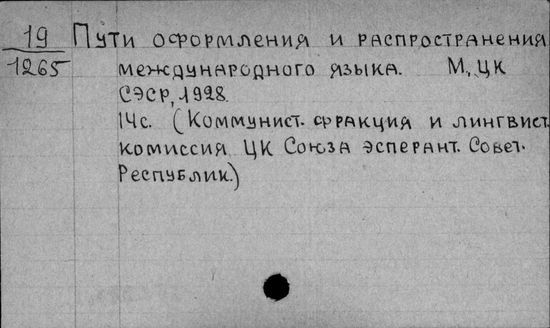 19 Пути оформления и распространения
1265 международного языка. М, ЦК
СЭСР, 1928.
14с. (Коммунист. фракция и лингвист.
комиссия ЦК Союза эсперант. Совет.
Республик.)